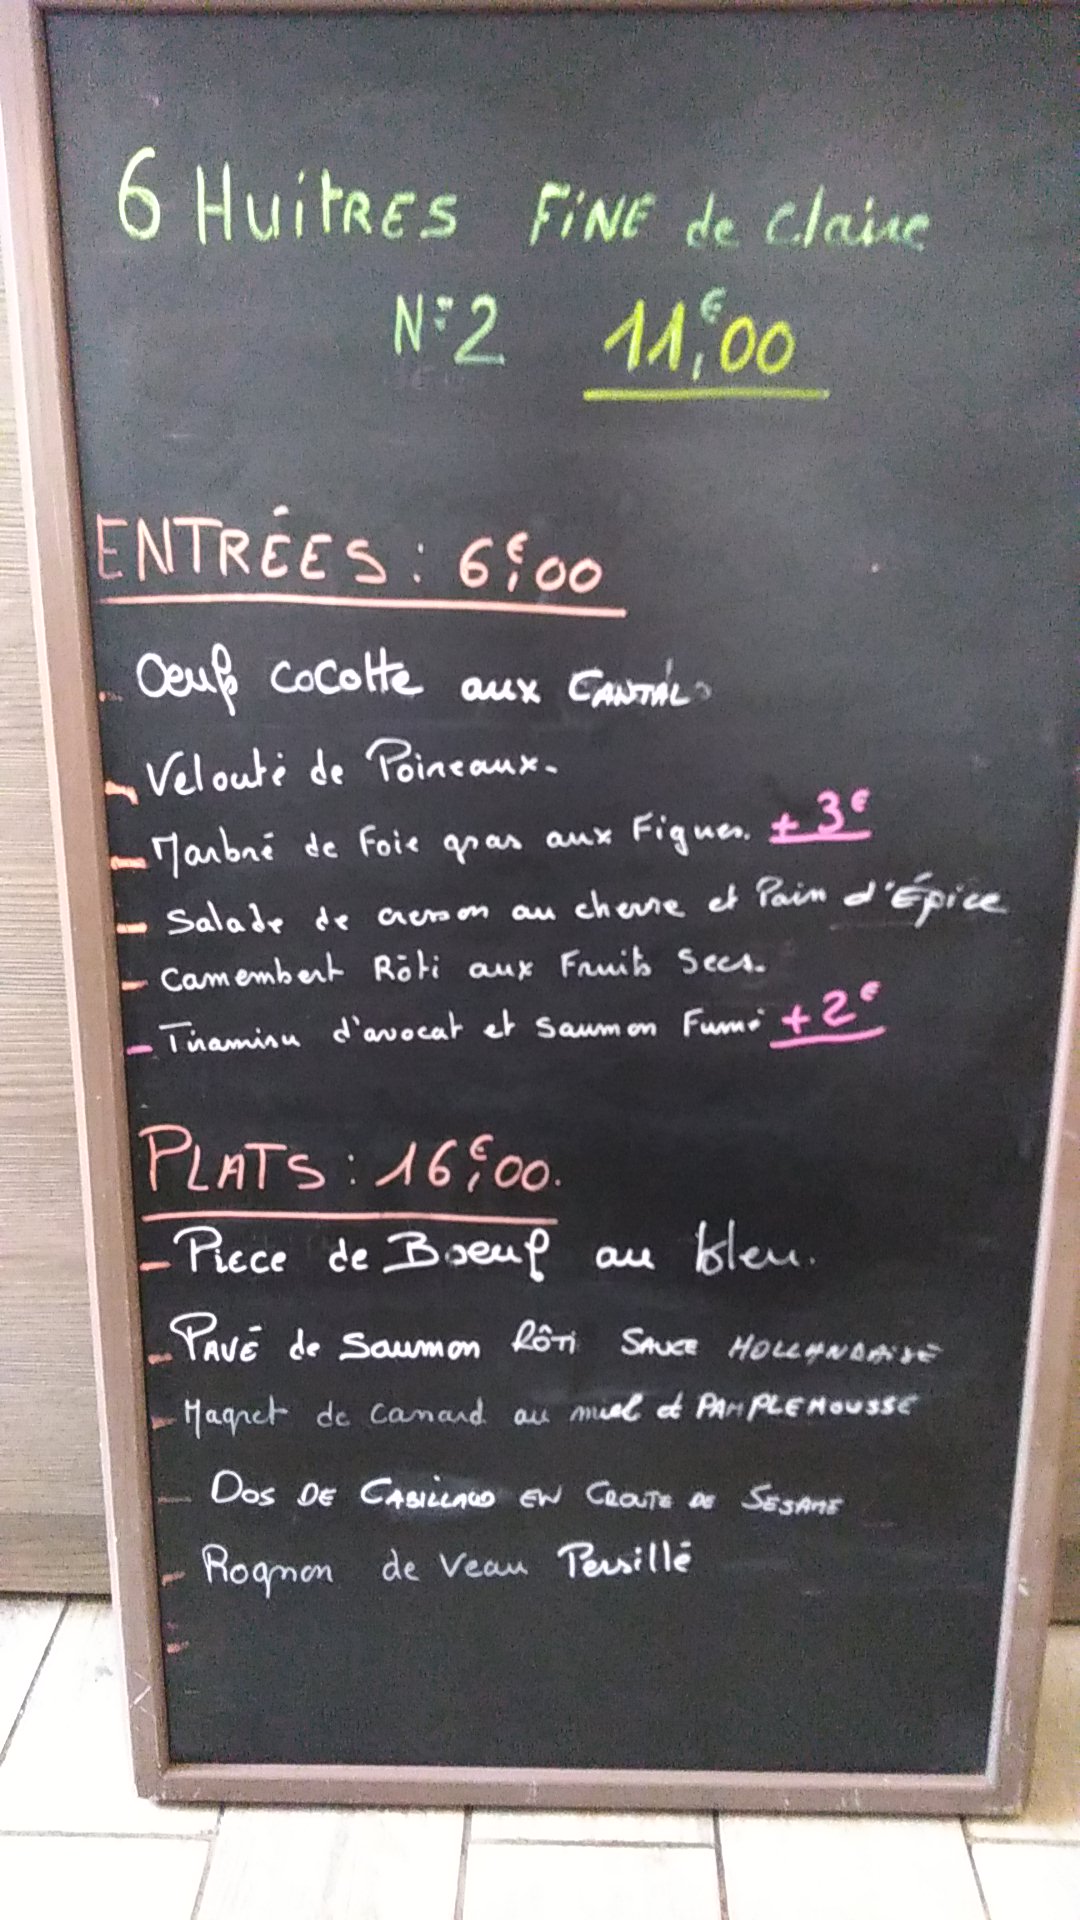 6 HuîtRES FiNE de Claire
N°2 11,€00
ENTRÉES : 6,€00
Oeufs cocotte aux CANTAL
- Velouté de Poireaux.
- Marbré de Foie gras aux Figues. + 3€
- Salade de cresson au chevre et Pain d'Épice
- Camembert Rôti aux Fruits Secs.
- Tiramisu d'avocat et Saumon Fumé + 2€
PLATS : 16,€00.
- Piece de Boeuf au bleu.
- PAVÉ de Saumon RôTi SAUCE HOLLANDAISE
- Magret de canard au miel et PAMPLEMOUSSE
- DOS DE CABILLAUD EN CROUTE DE SESAME
- Rognon de Veau Persillé
-